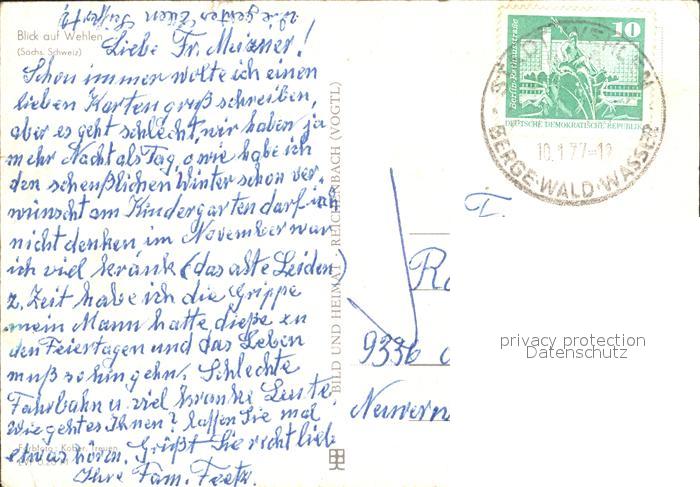 Blick auf Wehlen
(Sächs. Schweiz)
Liebe Fr. Meixner!
Schon immer wolte ich einen
lieben Karten gruß schreiben,
aber es geht schlecht, wir haben ja
mehr Nacht als Tag, o wie habe ich
den scheußlichen Winter schon ver-
wünscht am Kindergarten darf ich
nicht denken im November war
ich viel kränk (das alte Leiden)
z. Zeit habe ich die Grippe
mein Mann hatte dieße zu
den Feiertagen und das Leben
muß so hin gehn. Schlechte
Fahrbahn u. viel kranke Leute.
Wie gehts Ihnen? lassen Sie mal
etwas hörn. Grüßt Sie recht lieb
Ihre Fam.
BILD UND HEIMAT REICHENBACH (VOGTL)
Berlin, Rathausstraße
10
DEUTSCHE DEMOKRATISCHE REPUBLIK
STADT WEHLEN
10.1.77-12
BERGE·WALD·WASSER
9336
privacy protection
Datenschutz